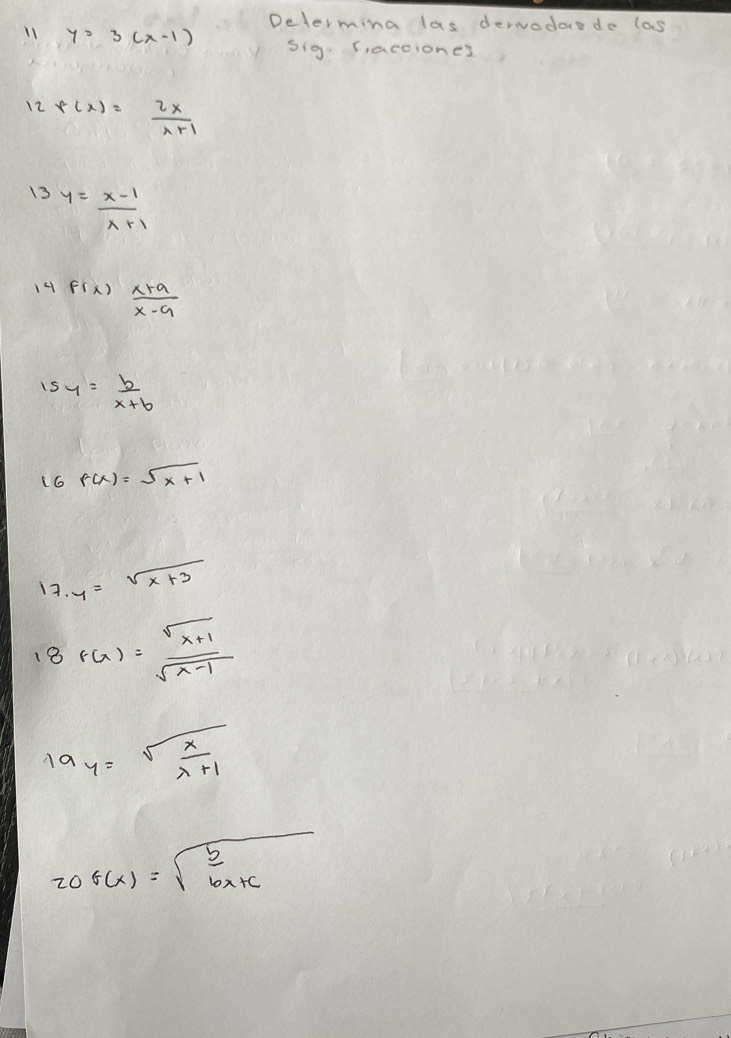 Determina las derivadas de las
sig. fracciones
11 y = 3(x-1)
12 f(x) = 2x
x+1
13 y = x-1
x+1
14 f(x) x+a
x-a
15 y = b
x+b
16 f(x) = √x+1
17. y = √x+3
18 f(x) = √x+1
√x-1
19 y = √ x
x+1
20 f(x) =
bx+c